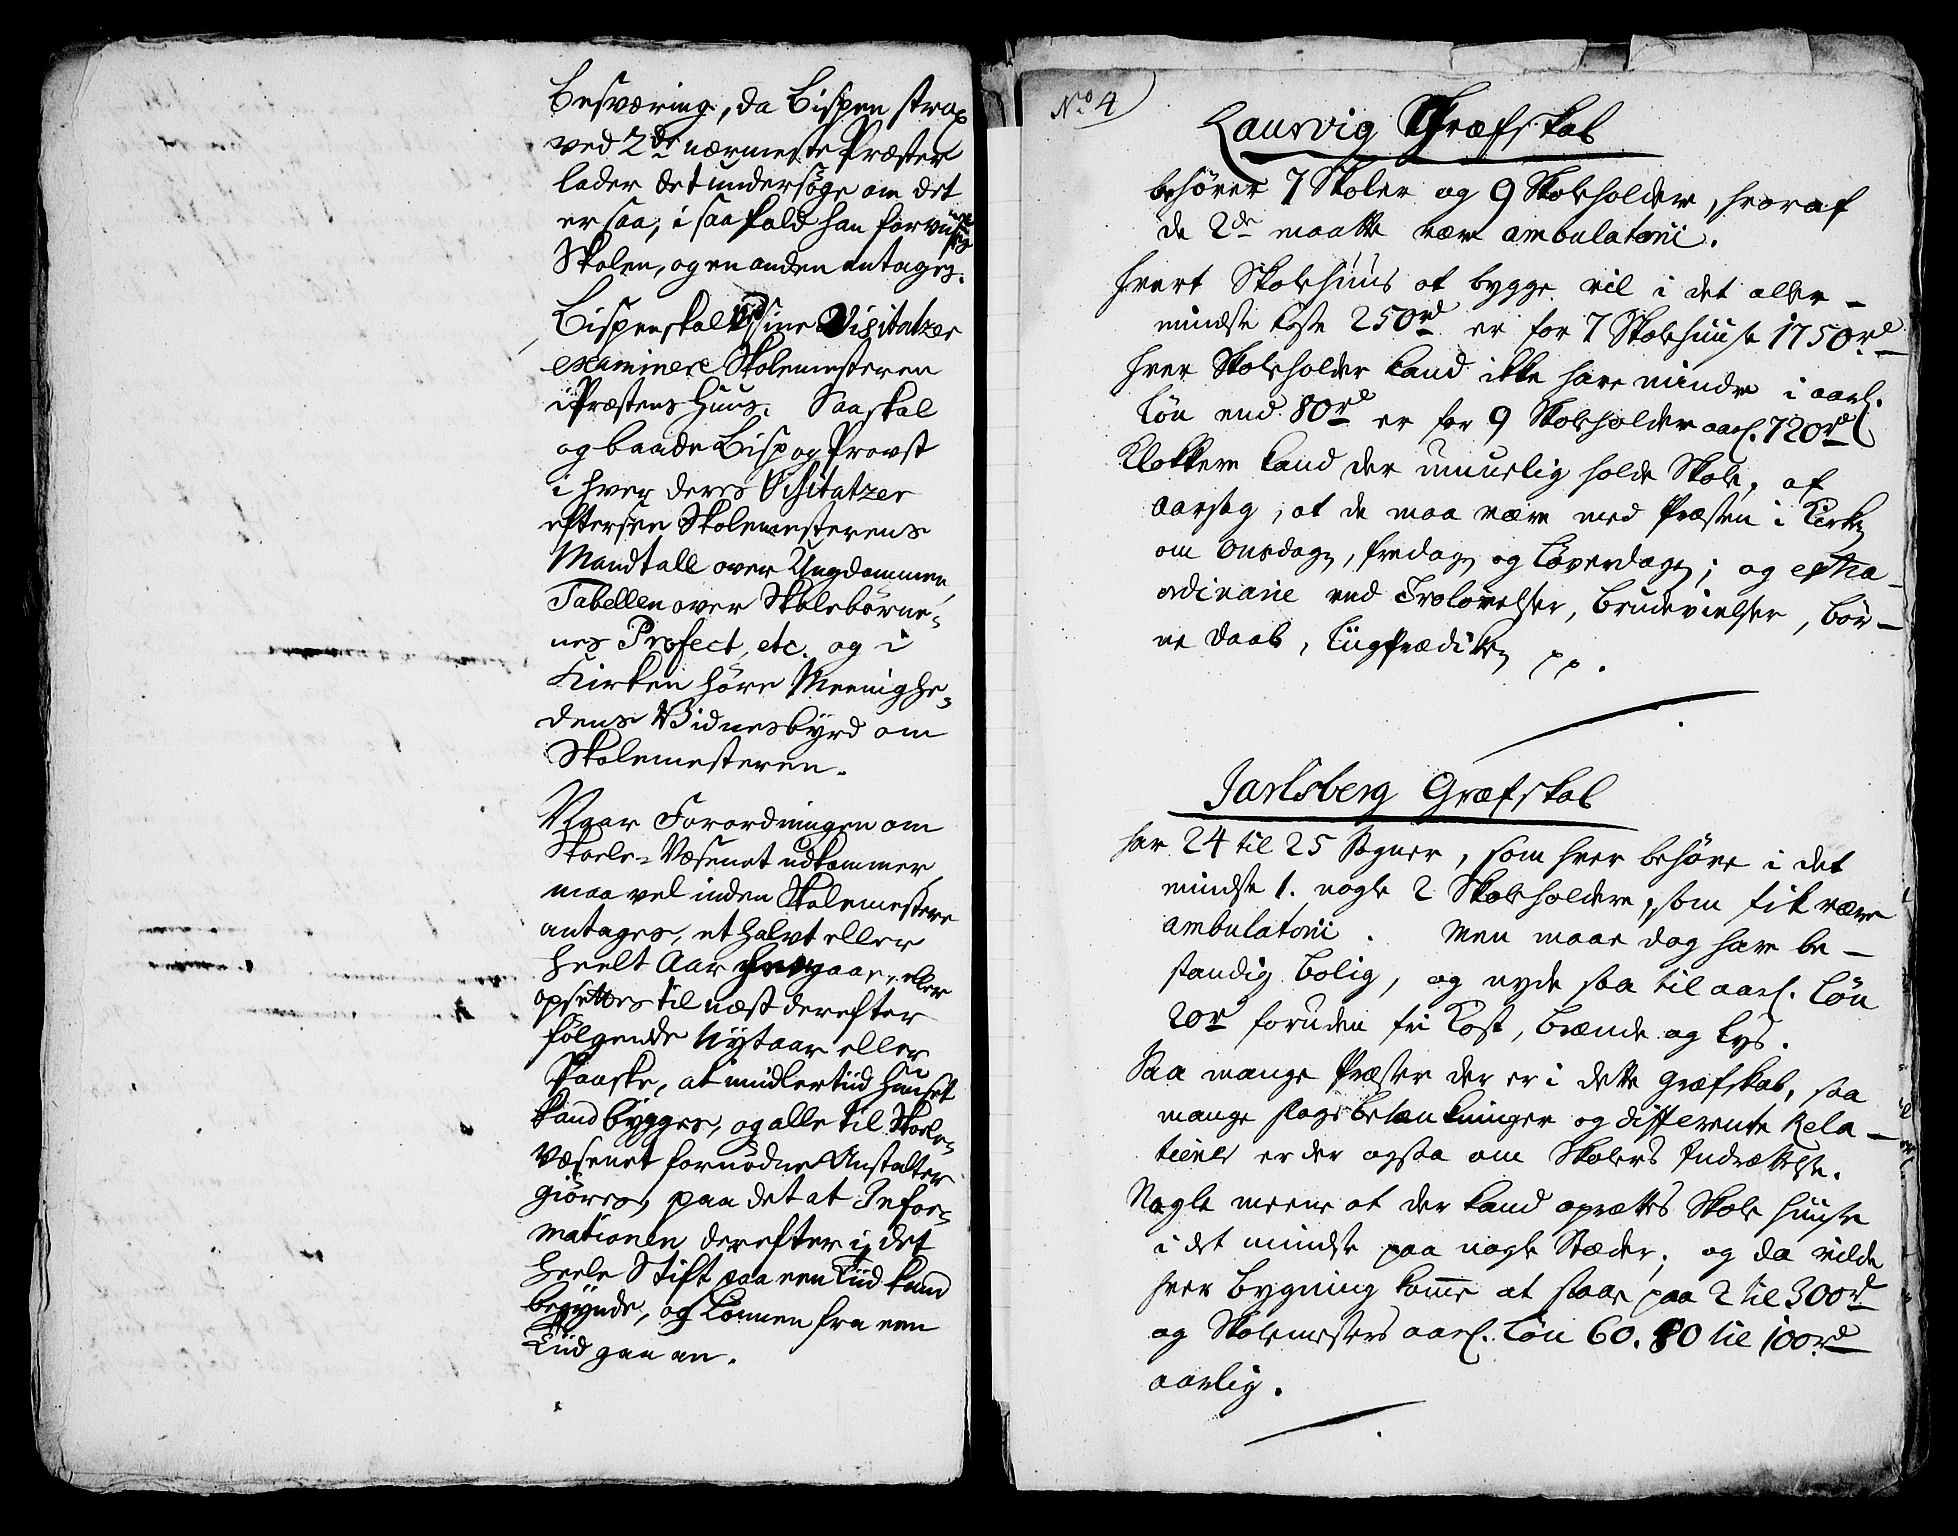 Besværing, da Bispen strax
ved 2de nærmeste Præster
lader det undersøge om det
er saa, i saa fald han forviises
Skolen, og en anden antages.
Bispen skal ved sine Visitatzer
examinere Skolemesteren
i Præstens Huus. Saa skal
og baade Bisp og Provst
i hver deres Visitatzer
eftersee Skolemesterens
Mandtall over Ungdommen,
Tabellen over Skolebørne-
nes Profect, etc. og i
Kirken høre Meenighe-
dens Vidnesbyrd om
Skolemesteren.
Naar Forordningen om
Skole-Væsenet udkommer,
maa vel inden Skolemestere
antages, et halvt eller
heelt Aar forgaae, eller
opsettes til næst derefter
følgende Nytaar eller
Paaske, at midlertiid Huuset
kand bygges, og alle til Skole-
Væsenet fornødne Anstalter
giøres, paa det at Infor-
mationen derefter i det
heele Stift paa een Tiid kand
begynde, og Lønnen fra een
Tiid gaa an.
No 4
Laurvig Græfskab
behøver 7 Skoler og 9 Skoleholdere, hvoraf
de 2de maatte være ambulatorii.
Hvert Skolehuus at bygge vil i det aller-
mindste koste 250rd er for 7 Skolehuuse 1750rd
Hver Skoleholder kand ikke have mindre i aarl.
Løn end 80rd er for 9 Skoleholdere aarl. 720rd
Klokkere kand der umuelig holde Skole, af
Aarsag, at de maa være med Præsten i Kirken
om Onsdagen, Fredagen og Løverdagen; og extra-
ordinarie ved Trolovelser, Brudevielser, Bør-
ne Daab, Liigprædiken pp.
Jarlsberg Græfskab
har 24 til 25 Sogner, som hver behøve i det
mindste 1. nogle 2 Skoleholdere, som fik være
ambulatorii. Men maae dog have be-
standig Bolig, og nyde saa til aarl. Løn
20rd foruden fri Kost, Brænde og Lys.
Saa mange Præster der er i dette Græfskab, saa
mange slags betænkninger og differente Rela-
tioner er der ogsaa om Skolers Indrættelse.
Nogle meene at der kand oprættes Skole Huuse
i det mindste paa nogle Stæder; og da vilde
hver Bygning komme at staae paa 2 til 300rd
og Skolemesters aarl. Løn 60. 80 til 100rd
aarlig.